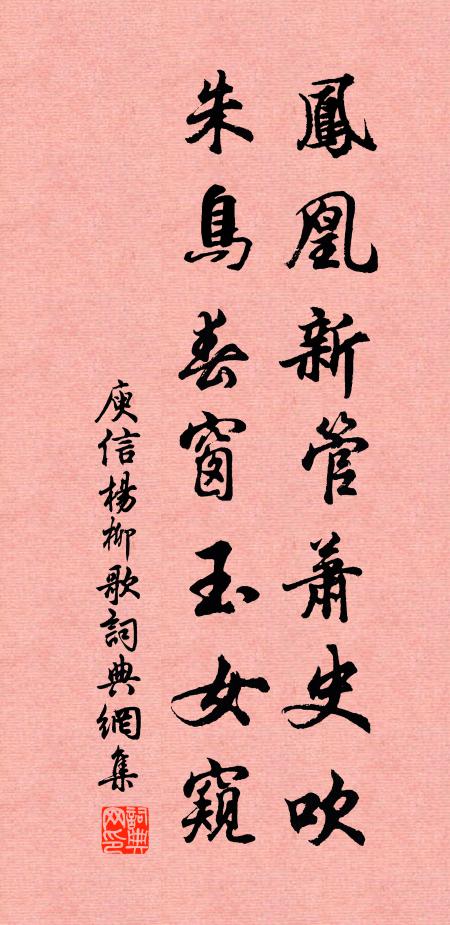 鳳凰新管蕭史吹
朱鳥春窗玉女窺
庾信楊柳歌詞典網集
詞典网印